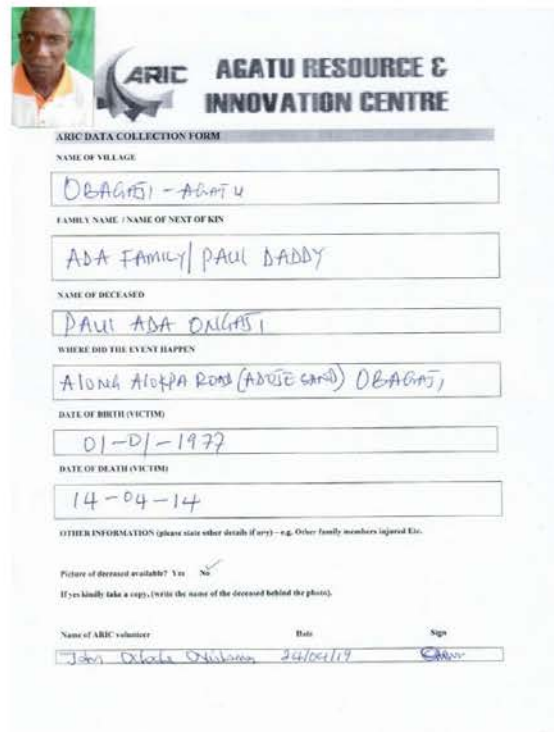 ARIC AGATU RESOURCE &
INNOVATION CENTRE
ARIC DATA COLLECTION FORM
NAME OF VILLAGE
OBAGAJI - AGATU
FAMILY NAME / NAME OF NEXT OF KIN
ADA FAMILY/ PAUL DADDY
NAME OF DECEASED
PAUL ADA ONGAJI
WHERE DID THE EVENT HAPPEN
ALONG ALOKPA ROAD (ADUJE SAND) OBAGAJI
DATE OF BIRTH (VICTIM)
01-01-1977
DATE OF DEATH (VICTIM)
14-04-14
OTHER INFORMATION (please state other details if any) – e.g. Other family members injured Etc.
Picture of deceased available? Yes No
If yes kindly take a copy, (write the name of the deceased behind the photo).
Name of ARIC volunteer Date Sign
24/04/19